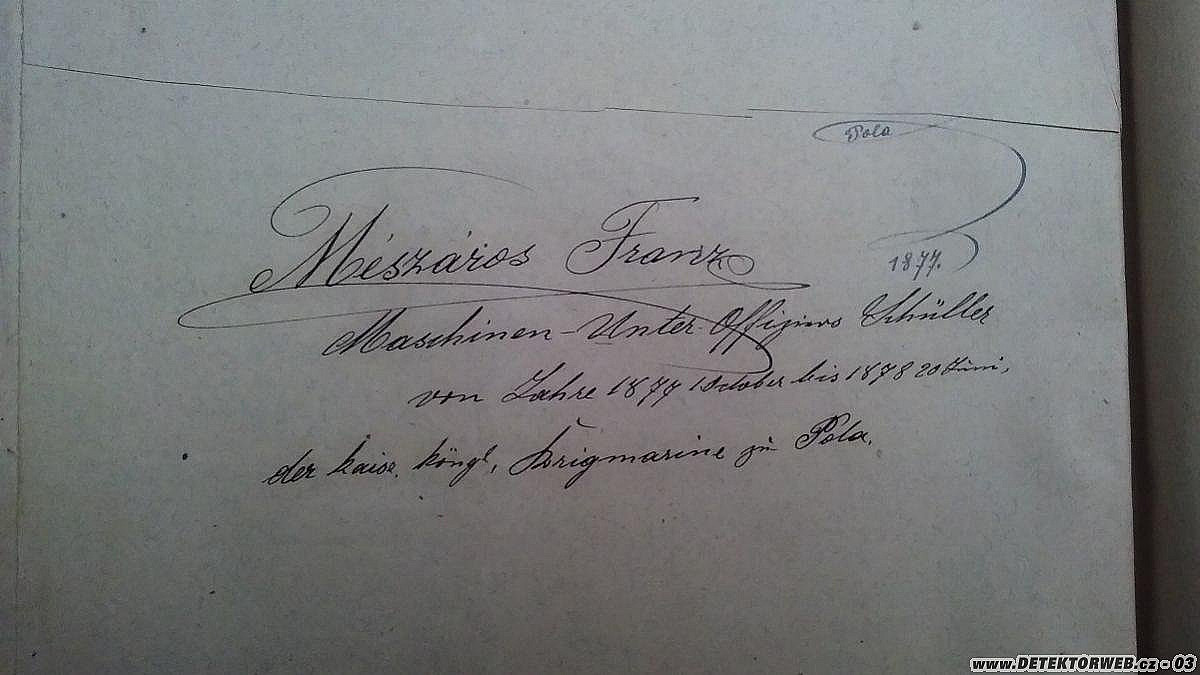 Pola
1877.
Mészáros Franz
Maschinen-Unter Offiziers Schüller
von Jahre 1877 1 October bis 1878 20 Juni,
der kais. köngl, Krigmarine zu Pola.
www.DETEKTORWEB.cz - 03